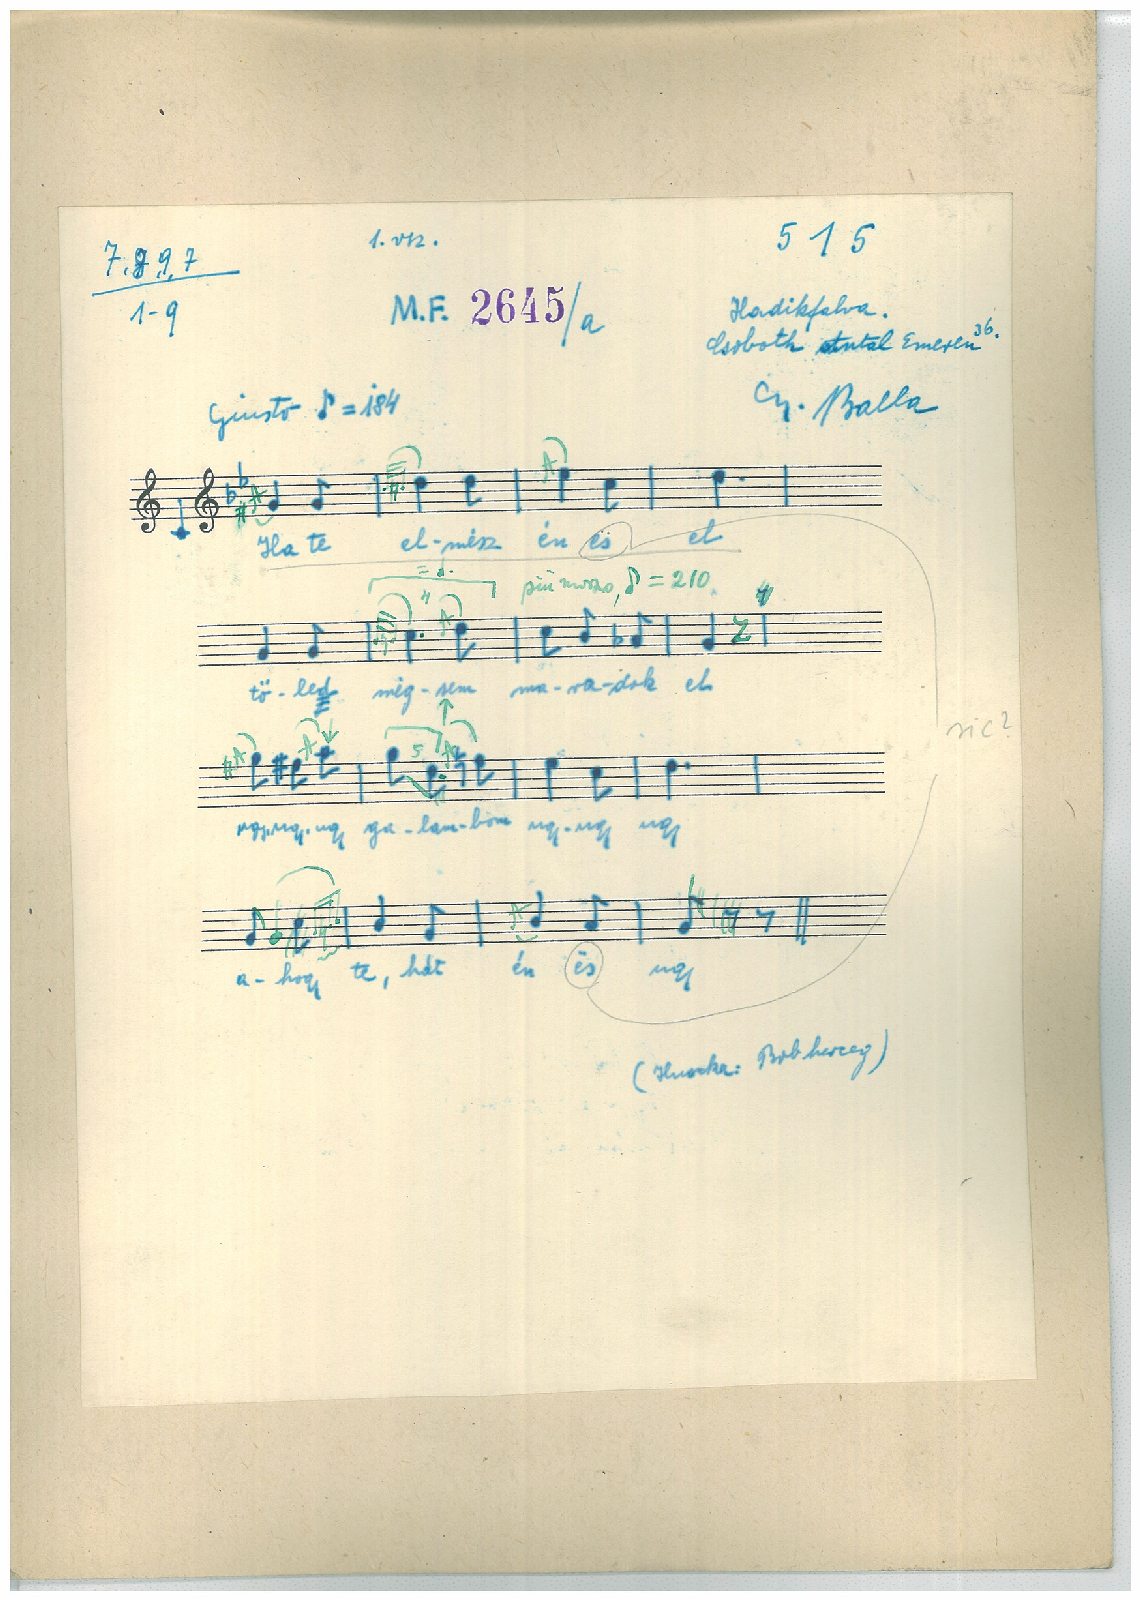 7. 8, 9, 7
1-9
1. vsz.
5 1 5
M.F. 2645/a
Hadikfalva.
Csoboth Antal 36.
Gy. Balla
Giusto ♪ = 184
Ha te el-mész én és el
più mosso, ♪ = 210
tö-led még-sem ma-ra-dok el
ugy, ugy, ugy ga-lam-bom ugy-ugy ugy
sic?
a-hogy te, hát én és ugy
(Huszka: Bob herceg)